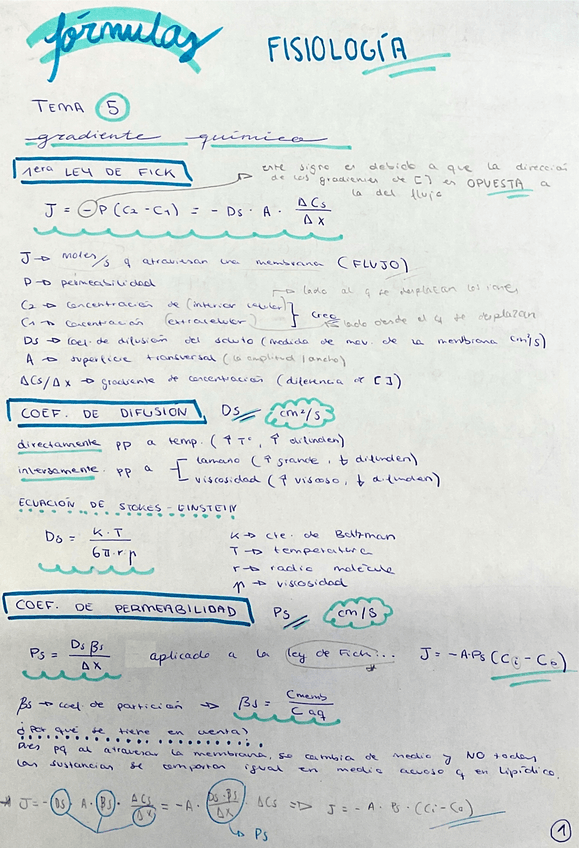 fórmulas FISIOLOGÍA
TEMA 5
gradiente químico
1era LEY DE FICK
este signo es debido a que la dirección
de los gradientes de [ ] es OPUESTA a
la del flujo
J = -P(C2-C1) = -Ds · A · ΔCs/Δx
J → moles/s q atraviesan una membrana (FLUJO)
P → permeabilidad
→ lado al q se desplazan los iones
C2 → concentración de (interior celular)
C1 → concentración (extracelular) } creo
→ lado desde el q se desplazan
Ds → coef. de difusión del soluto (medida de mov. de la membrana cm²/s)
A → superficie transversal (la amplitud/ancho)
ΔCs/Δx → gradiente de concentración (diferencia de [ ])
COEF. DE DIFUSIÓN Ds cm²/s
directamente pp a temp. (↑Tª, ↑ difunden)
inversamente pp a
tamaño (↑ grande, ↓ difunden)
viscosidad (↑ viscoso, ↓ difunden)
ECUACIÓN DE STOKES-EINSTEIN
Ds = K·T / 6π·r·µ
K → cte. de Boltzman
T → temperatura
r → radio molécula
µ → viscosidad
COEF. DE PERMEABILIDAD Ps cm/s
Ps = Ds βs / Δx aplicado a la ley de Fick... J = -A·Ps (Ci-Co)
βs → coef. de partición → βs = Cmemb / Caq
¿por qué se tiene en cuenta?
Pues pq al atravesar la membrana, se cambia de medio y NO todas
las sustancias se comportan igual en medio acuoso q en lipídico.
→ J = -Ds · A · βs · ΔCs/Δx = -A · Ds·βs/Δx · ΔCs ⇒ J = -A · Ps · (Ci-Co)
→ Ps
1